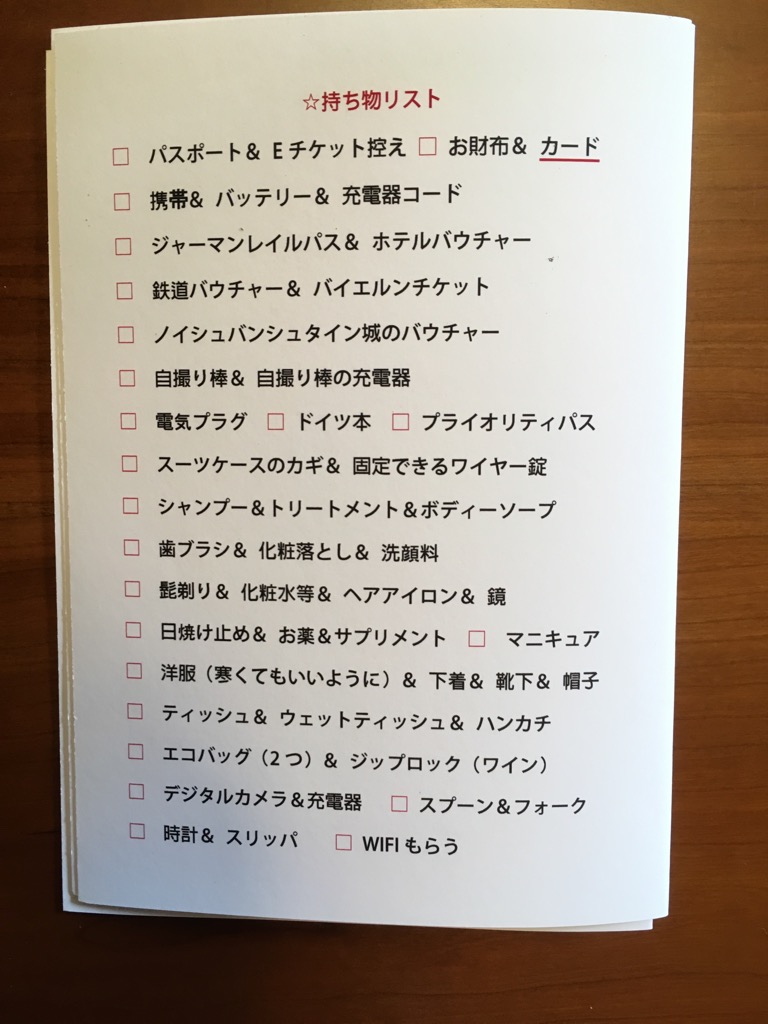 ☆持ち物リスト
□ パスポート& Eチケット控え □ お財布& カード
□ 携帯& バッテリー& 充電器コード
□ ジャーマンレイルパス& ホテルバウチャー
□ 鉄道バウチャー& バイエルンチケット
□ ノイシュバンシュタイン城のバウチャー
□ 自撮り棒& 自撮り棒の充電器
□ 電気プラグ □ ドイツ本 □ プライオリティパス
□ スーツケースのカギ& 固定できるワイヤー錠
□ シャンプー&トリートメント&ボディーソープ
□ 歯ブラシ& 化粧落とし& 洗顔料
□ 髭剃り& 化粧水等& ヘアアイロン& 鏡
□ 日焼け止め& お薬&サプリメント □ マニキュア
□ 洋服（寒くてもいいように）& 下着& 靴下& 帽子
□ ティッシュ& ウェットティッシュ& ハンカチ
□ エコバッグ（2つ）& ジップロック（ワイン）
□ デジタルカメラ&充電器 □ スプーン&フォーク
□ 時計& スリッパ □ WIFIもらう